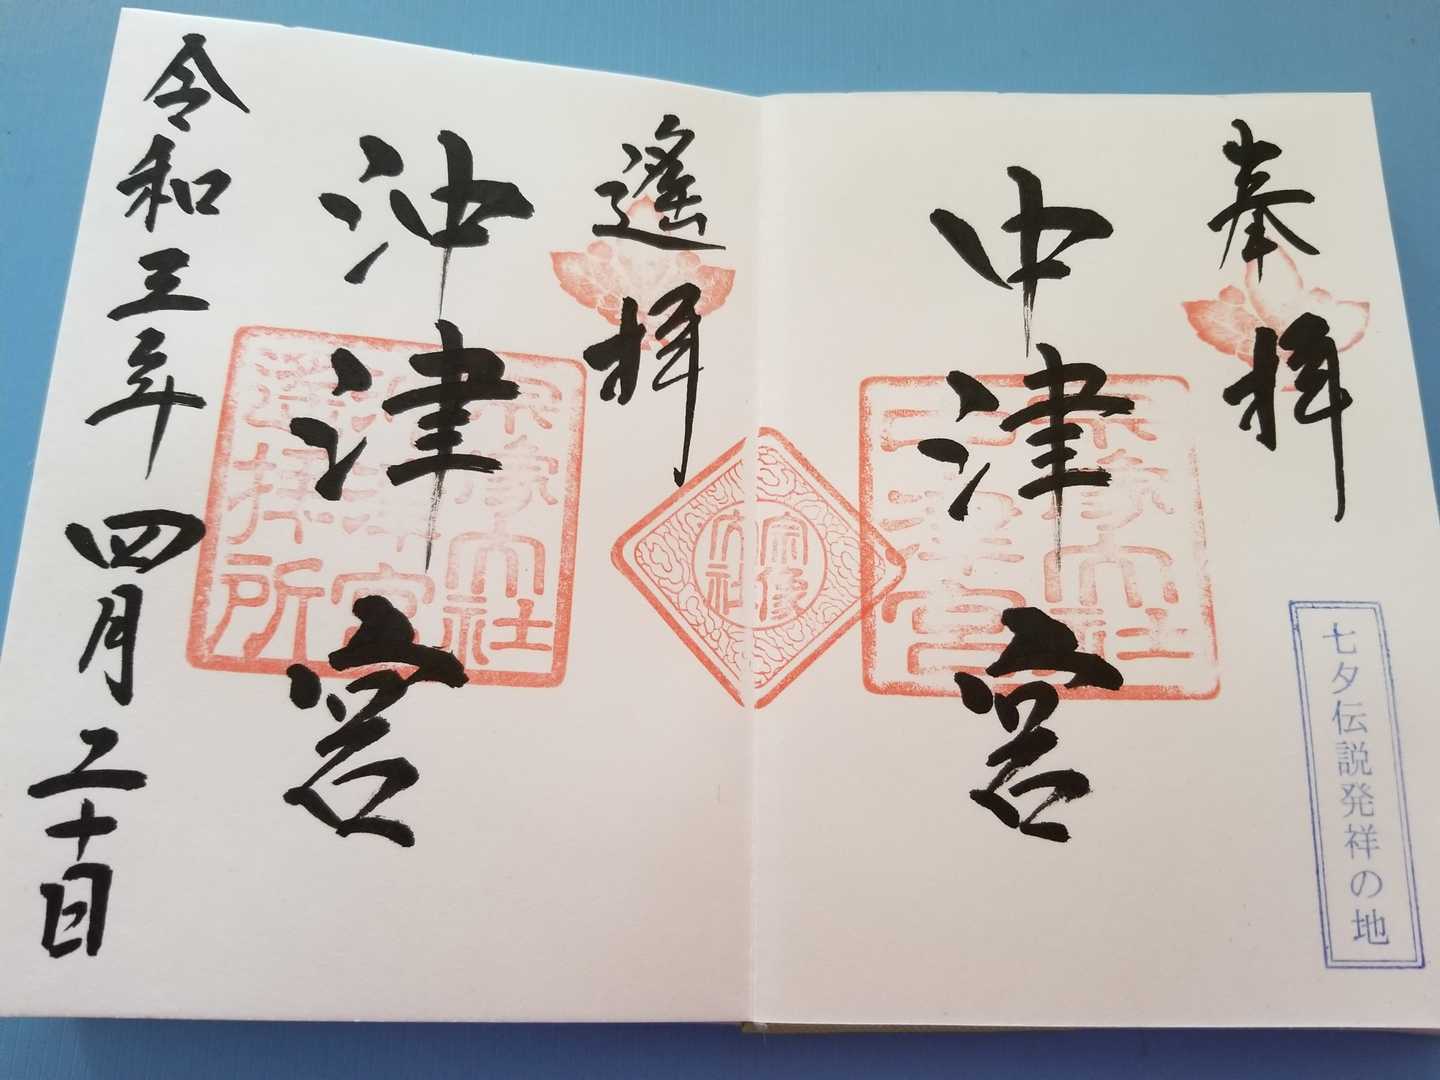 奉拝
中津宮
宗像大社
中津宮
七夕伝説発祥の地
宗像
大社
遙拝
沖津宮
宗像大社
沖津宮
遥拝所
令和三年四月二十日